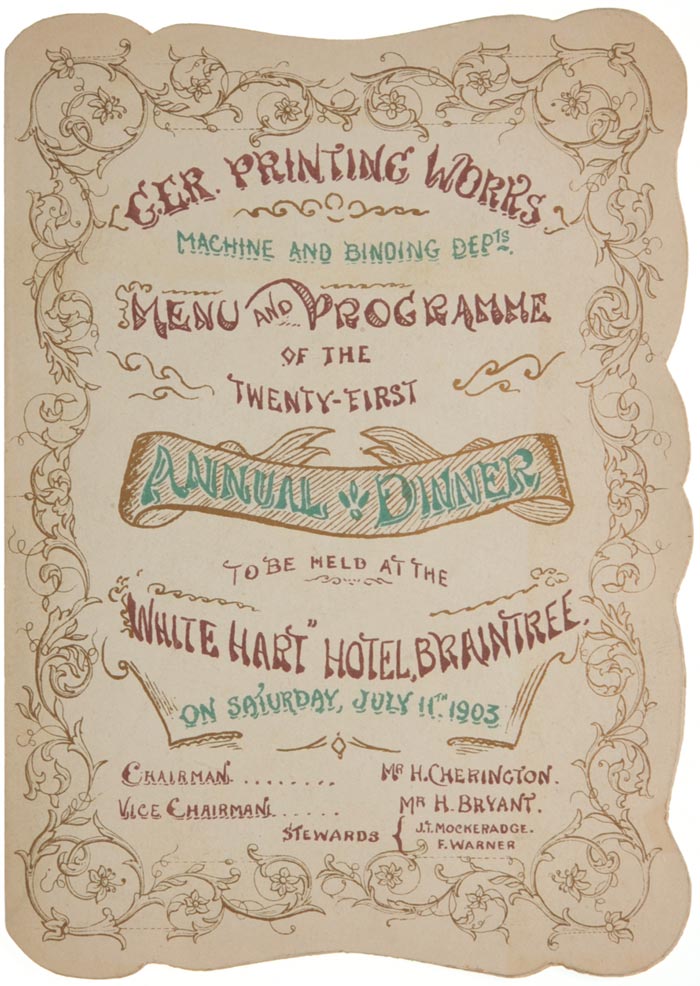 G.E.R. PRINTING WORKS.
MACHINE AND BINDING DEPTS.
MENU AND PROGRAMME
OF THE
TWENTY-FIRST
ANNUAL DINNER
TO BE HELD AT THE
"WHITE HART" HOTEL, BRAINTREE.
ON SATURDAY, JULY 11TH 1903
CHAIRMAN ........ MR H. CHERINGTON.
VICE CHAIRMAN ...... MR H. BRYANT.
STEWARDS { J.T. MOCKERADGE.
F. WARNER